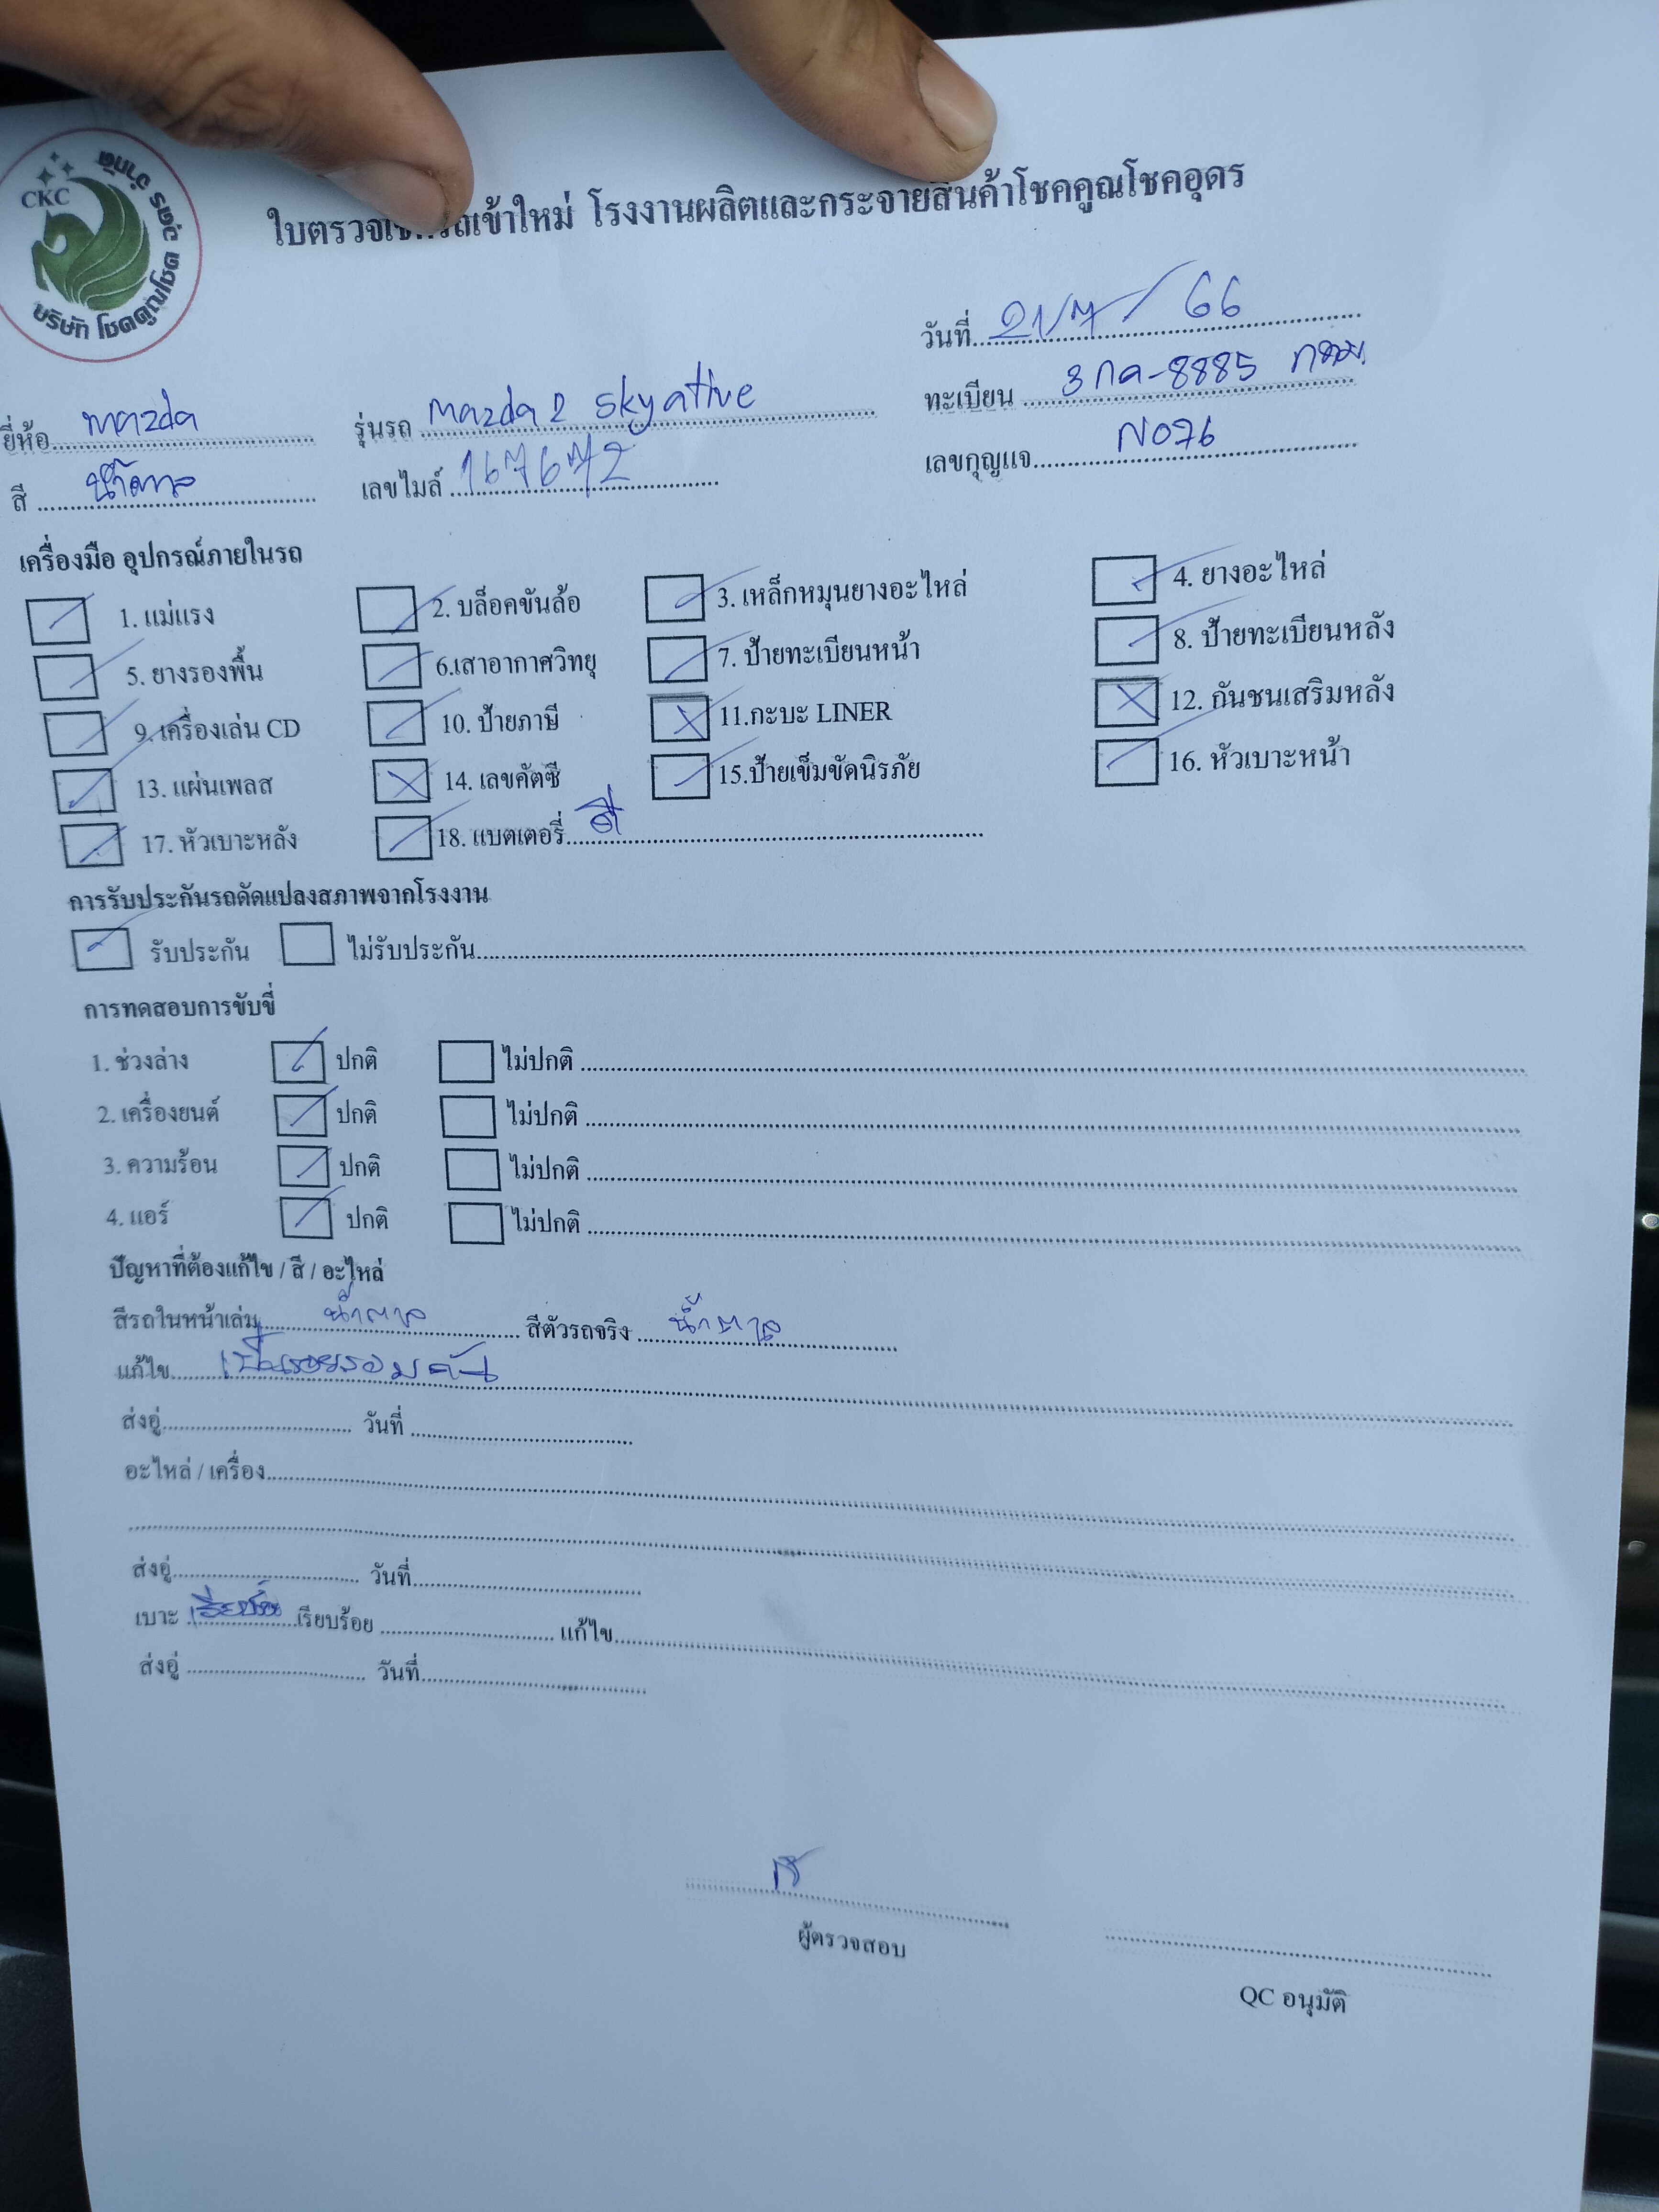 CKC
บริษัท โชคคูณโชค อุดร จำกัด
ใบตรวจเช็ครถเข้าใหม่ โรงงานผลิตและกระจายสินค้าโชคคูณโชคอุดร
วันที่ 21/7/66
ยี่ห้อ mazda รุ่นรถ Mazda 2 skyative ทะเบียน 3กค-8885 กทม.
สี น้ำตาล เลขไมล์ 167672 เลขกุญแจ N076
เครื่องมือ อุปกรณ์ภายในรถ
1. แม่แรง 2. บล็อคขันล้อ 3. เหล็กหมุนยางอะไหล่ 4. ยางอะไหล่
5. ยางรองพื้น 6.เสาอากาศวิทยุ 7. ป้ายทะเบียนหน้า 8. ป้ายทะเบียนหลัง
9. เครื่องเล่น CD 10. ป้ายภาษี 11.กะบะ LINER 12. กันชนเสริมหลัง
13. แผ่นเพลส 14. เลขคัตซี 15.ป้ายเข็มขัดนิรภัย 16. หัวเบาะหน้า
17. หัวเบาะหลัง 18. แบตเตอรี่ ดี
การรับประกันรถดัดแปลงสภาพจากโรงงาน
รับประกัน ไม่รับประกัน
การทดสอบการขับขี่
1. ช่วงล่าง ปกติ ไม่ปกติ
2. เครื่องยนต์ ปกติ ไม่ปกติ
3. ความร้อน ปกติ ไม่ปกติ
4. แอร์ ปกติ ไม่ปกติ
ปัญหาที่ต้องแก้ไข / สี / อะไหล่
สีรถในหน้าเล่ม น้ำตาล สีตัวรถจริง น้ำตาล
แก้ไข เป็นรอยรอบคัน
ส่งอู่ วันที่
อะไหล่ / เครื่อง
ส่งอู่ วันที่
เบาะ เรียบร้อย เรียบร้อย แก้ไข
ส่งอู่ วันที่
ผู้ตรวจสอบ
QC อนุมัติ